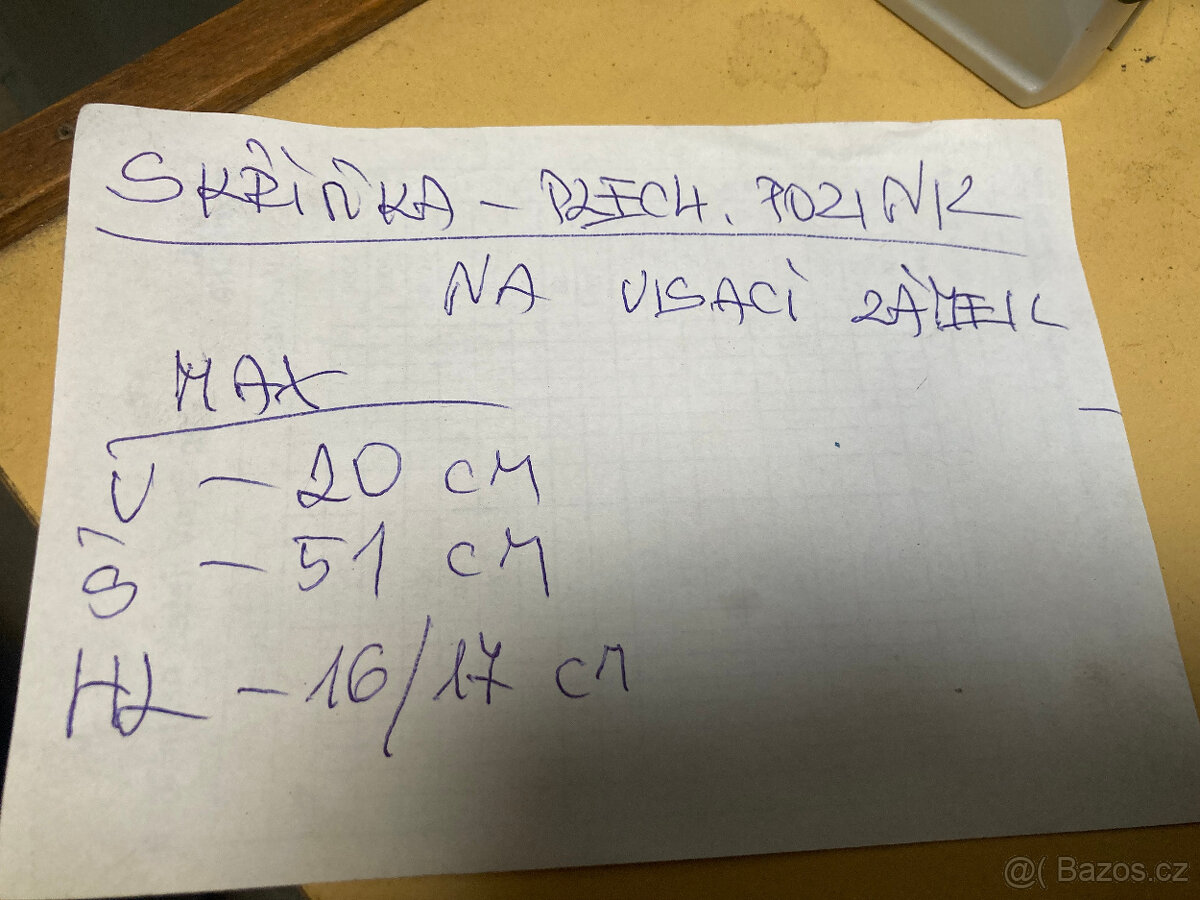 SKŘÍŇKA – PLECH. POZINK
NA VISACÍ ZÁMEK
MAX
V – 20 CM
Š – 51 CM
HL – 16/17 CM
@( Bazos.cz